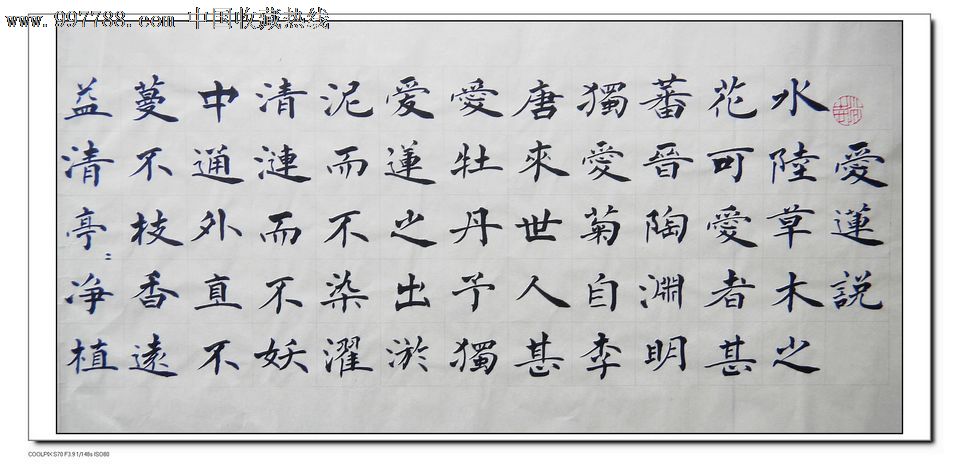 www.997788.com 中国收藏热线
愛蓮説
水陸草木之
花可愛者甚
蕃晉陶淵明
獨愛菊自李
唐來世人甚
愛牡丹予獨
爱蓮之出淤
泥而不染濯
清漣而不妖
中通外直不
蔓不枝香遠
益清亭〻净植
COOLPIX S70 F3.9 1/148s ISO80